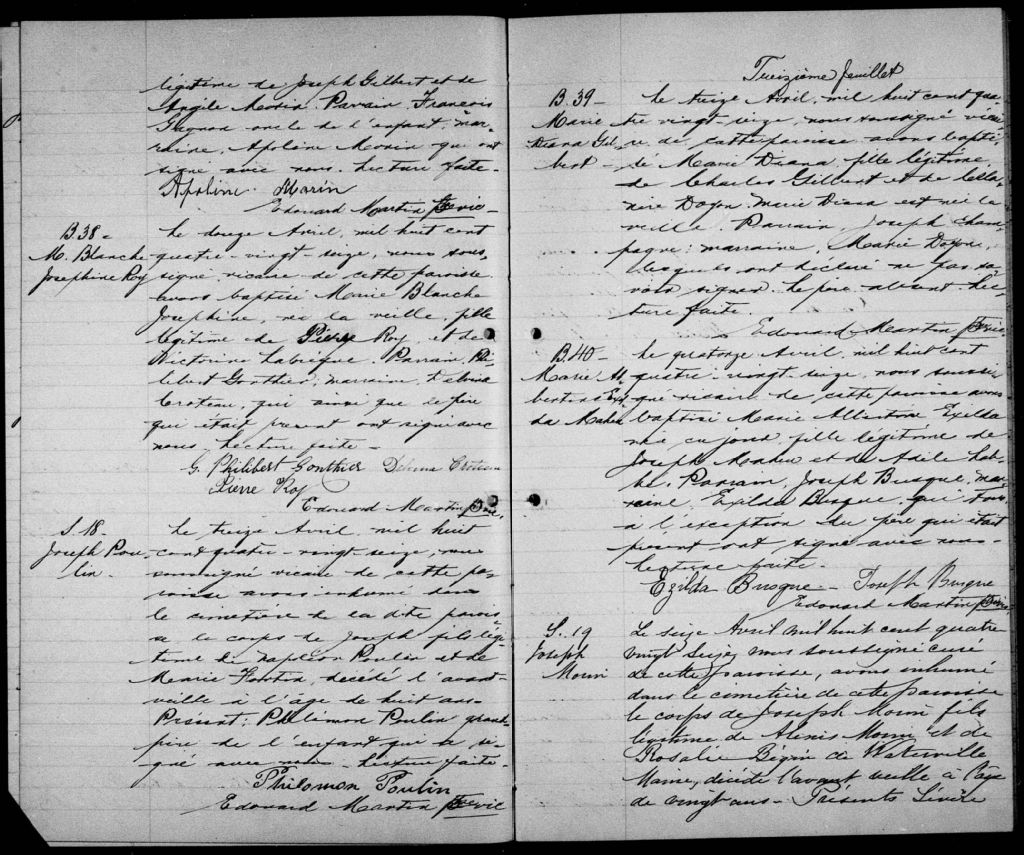 légitime de Joseph Gilbert et de
Angèle Morin. Parrain François
Gagnon oncle de l'enfant, mar-
raine, Apoline Morin qui ont
signé avec nous. Lecture faite-
Apoline Morin
Edouard Martin Ptre vic-
B 38-
M. Blanche
Josephine Roy
Le douze Avril, mil huit cent
quatre-vingt-seize, nous sous
signé vicaire de cette paroisse
avons baptisé Marie Blanche
Josephine, née la veille, fille
légitime de Pierre Roy et de
Victorine Labrèque. Parrain Phi-
lebert Gonthier; marraine,
Croteau, qui ainsi que le père
qui était présent ont signé avec
nous. Lecture faite-
G. Philibert Gonthier Delvina Croteau
Pierre Roy
Edouard Martin Ptre
S. 18-
Joseph Pou-
lin-
Le treize Avril mil huit
cent quatre-vingt seize, nous
soussigné vicaire de cette pa-
roisse avons inhumé dans
le cimetière de la dite parois-
se le corps de Joseph fils légi-
time de Napoléon Poulin et de
Marie, décédé l'avant
veille à l'âge de huit ans-
Présent: Philémon Poulin grand-
père de l'enfant qui a si-
gné avec nous. Lecture faite-
Philomon Poulin
Edouard Martin Ptre vic
Treizième feuillet
B. 39-
Marie
Diana Gil-
bert-
Le treize Avril, mil huit cent qua-
tre vingt-seize, nous soussigné vicai-
re de cette paroisse avons bapti-
sé Marie Diana, fille légitime
de Charles Gilbert et de
Doyon. Marie Diana est née la
veille. Parrain, Joseph Cham-
pagne; marraine, Marie Doyon,
lesquels ont déclaré ne pas sa-
voir signer. Le père absent. Lec-
ture faite.
Edouard Martin Ptre vic
B. 40-
Marie Al-
bertine Exil-
da Maheu
Le quatorze Avril, mil huit cent
quatre-vingt-seize, nous soussi-
gné vicaire de cette paroisse avons
baptisé Marie Albertine Exilda
née ce jour, fille légitime de
Joseph Maheu et de Adèle Lab-
bé. Parrain, Joseph Busque, mar-
raine, Exilda Busque, qui tous
à l'exception du père qui était
présent ont signé avec nous-
Lecture faite.
Ezilda Busque- Joseph Busque
Edouard Martin Ptre vic
S. 19
Joseph
Morin
Le seize Avril mil huit cent quatre
vingt seize, nous soussigné curé
de cette paroisse, avons inhumé
dans le cimetière de cette paroisse
le corps de Joseph Morin fils
légitime de Alexis Morin et de
Rosalie Bégin de Waterville
Maine, décédé l'avant veille à l'âge
de vingt ans- Présents